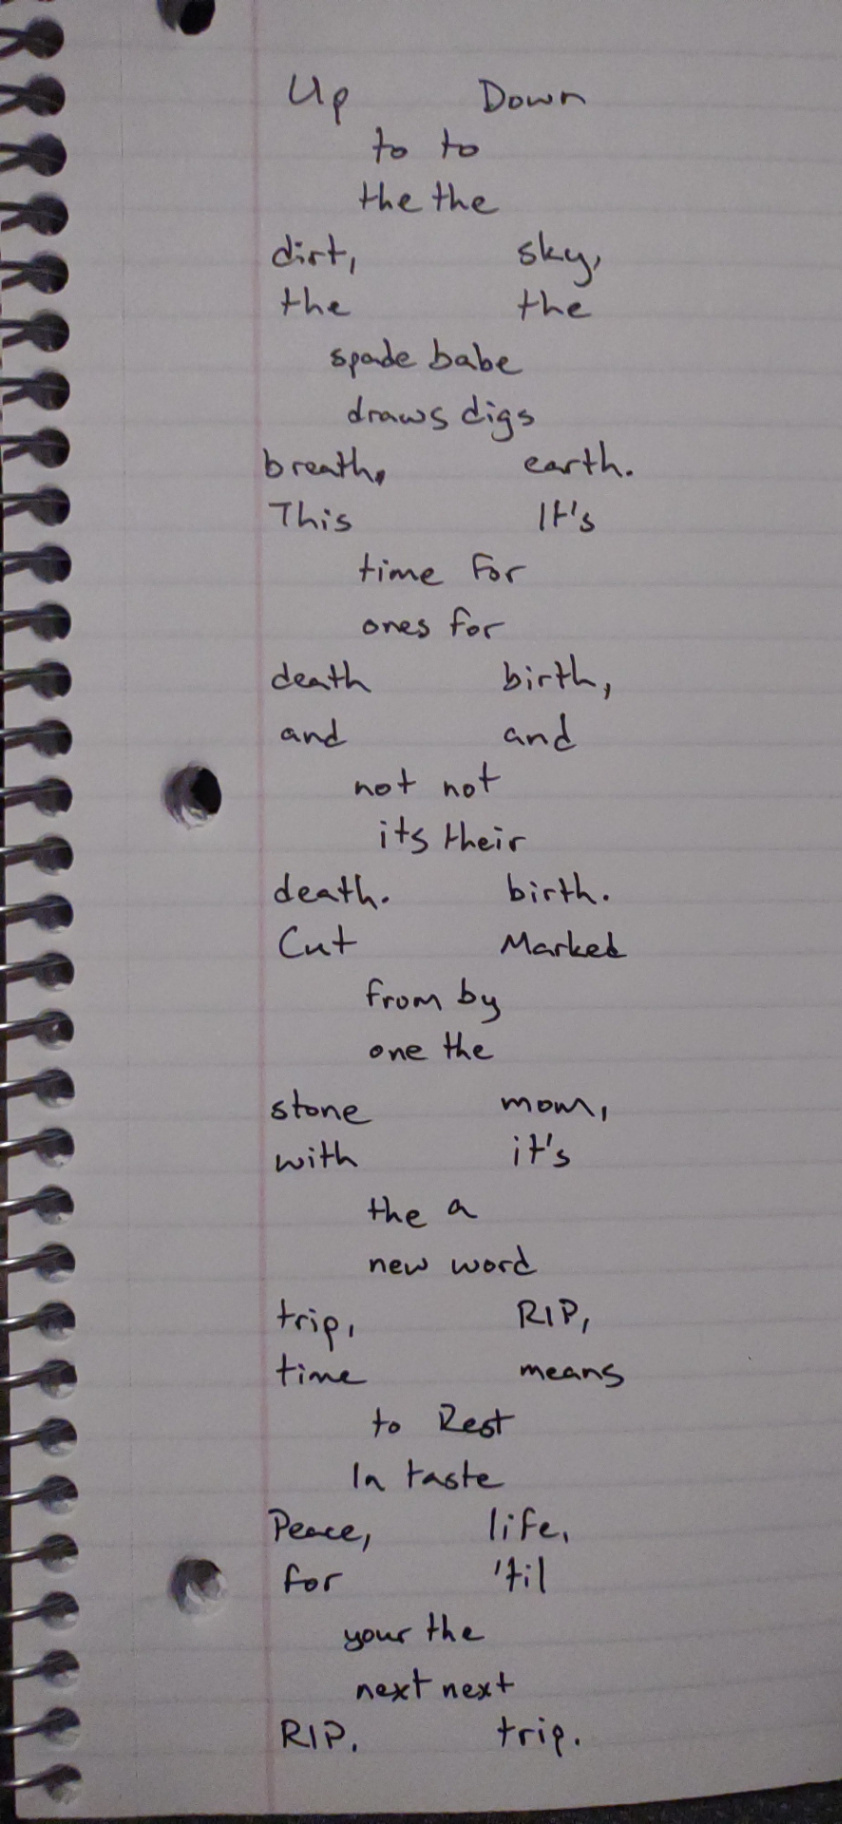 Up Down
to to
the the
dirt, sky,
the the
spade babe
draws digs
breath, earth.
This It's
time for
ones for
death birth,
and and
not not
its their
death. birth.
Cut Marked
from by
one the
stone mom,
with it's
the a
new word
trip, RIP,
time means
to Rest
In taste
Peace, life,
for 'til
your the
next next
RIP. trip.